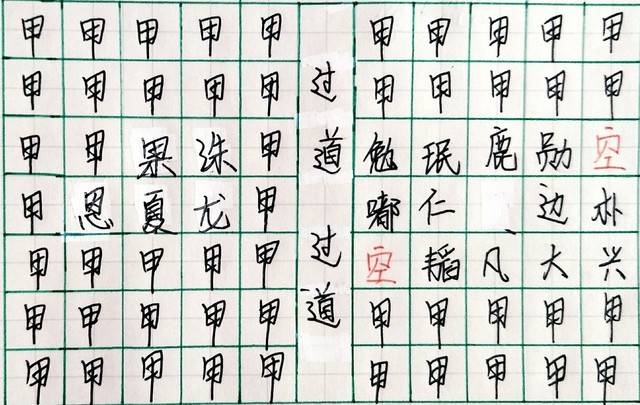 甲 甲 甲 甲 甲 甲 甲 甲 甲 甲
甲 甲 甲 甲 甲 过 甲 甲 甲 甲 甲
甲 甲 果 洙 甲 道 勉 珉 鹿 勋 空
甲 恩 夏 龙 甲 嘟 仁 边 朴
甲 甲 甲 甲 甲 过 空 韬 凡 大 兴
甲 甲 甲 甲 甲 道 甲 甲 甲 甲 甲
甲 甲 甲 甲 甲 甲 甲 甲 甲 甲